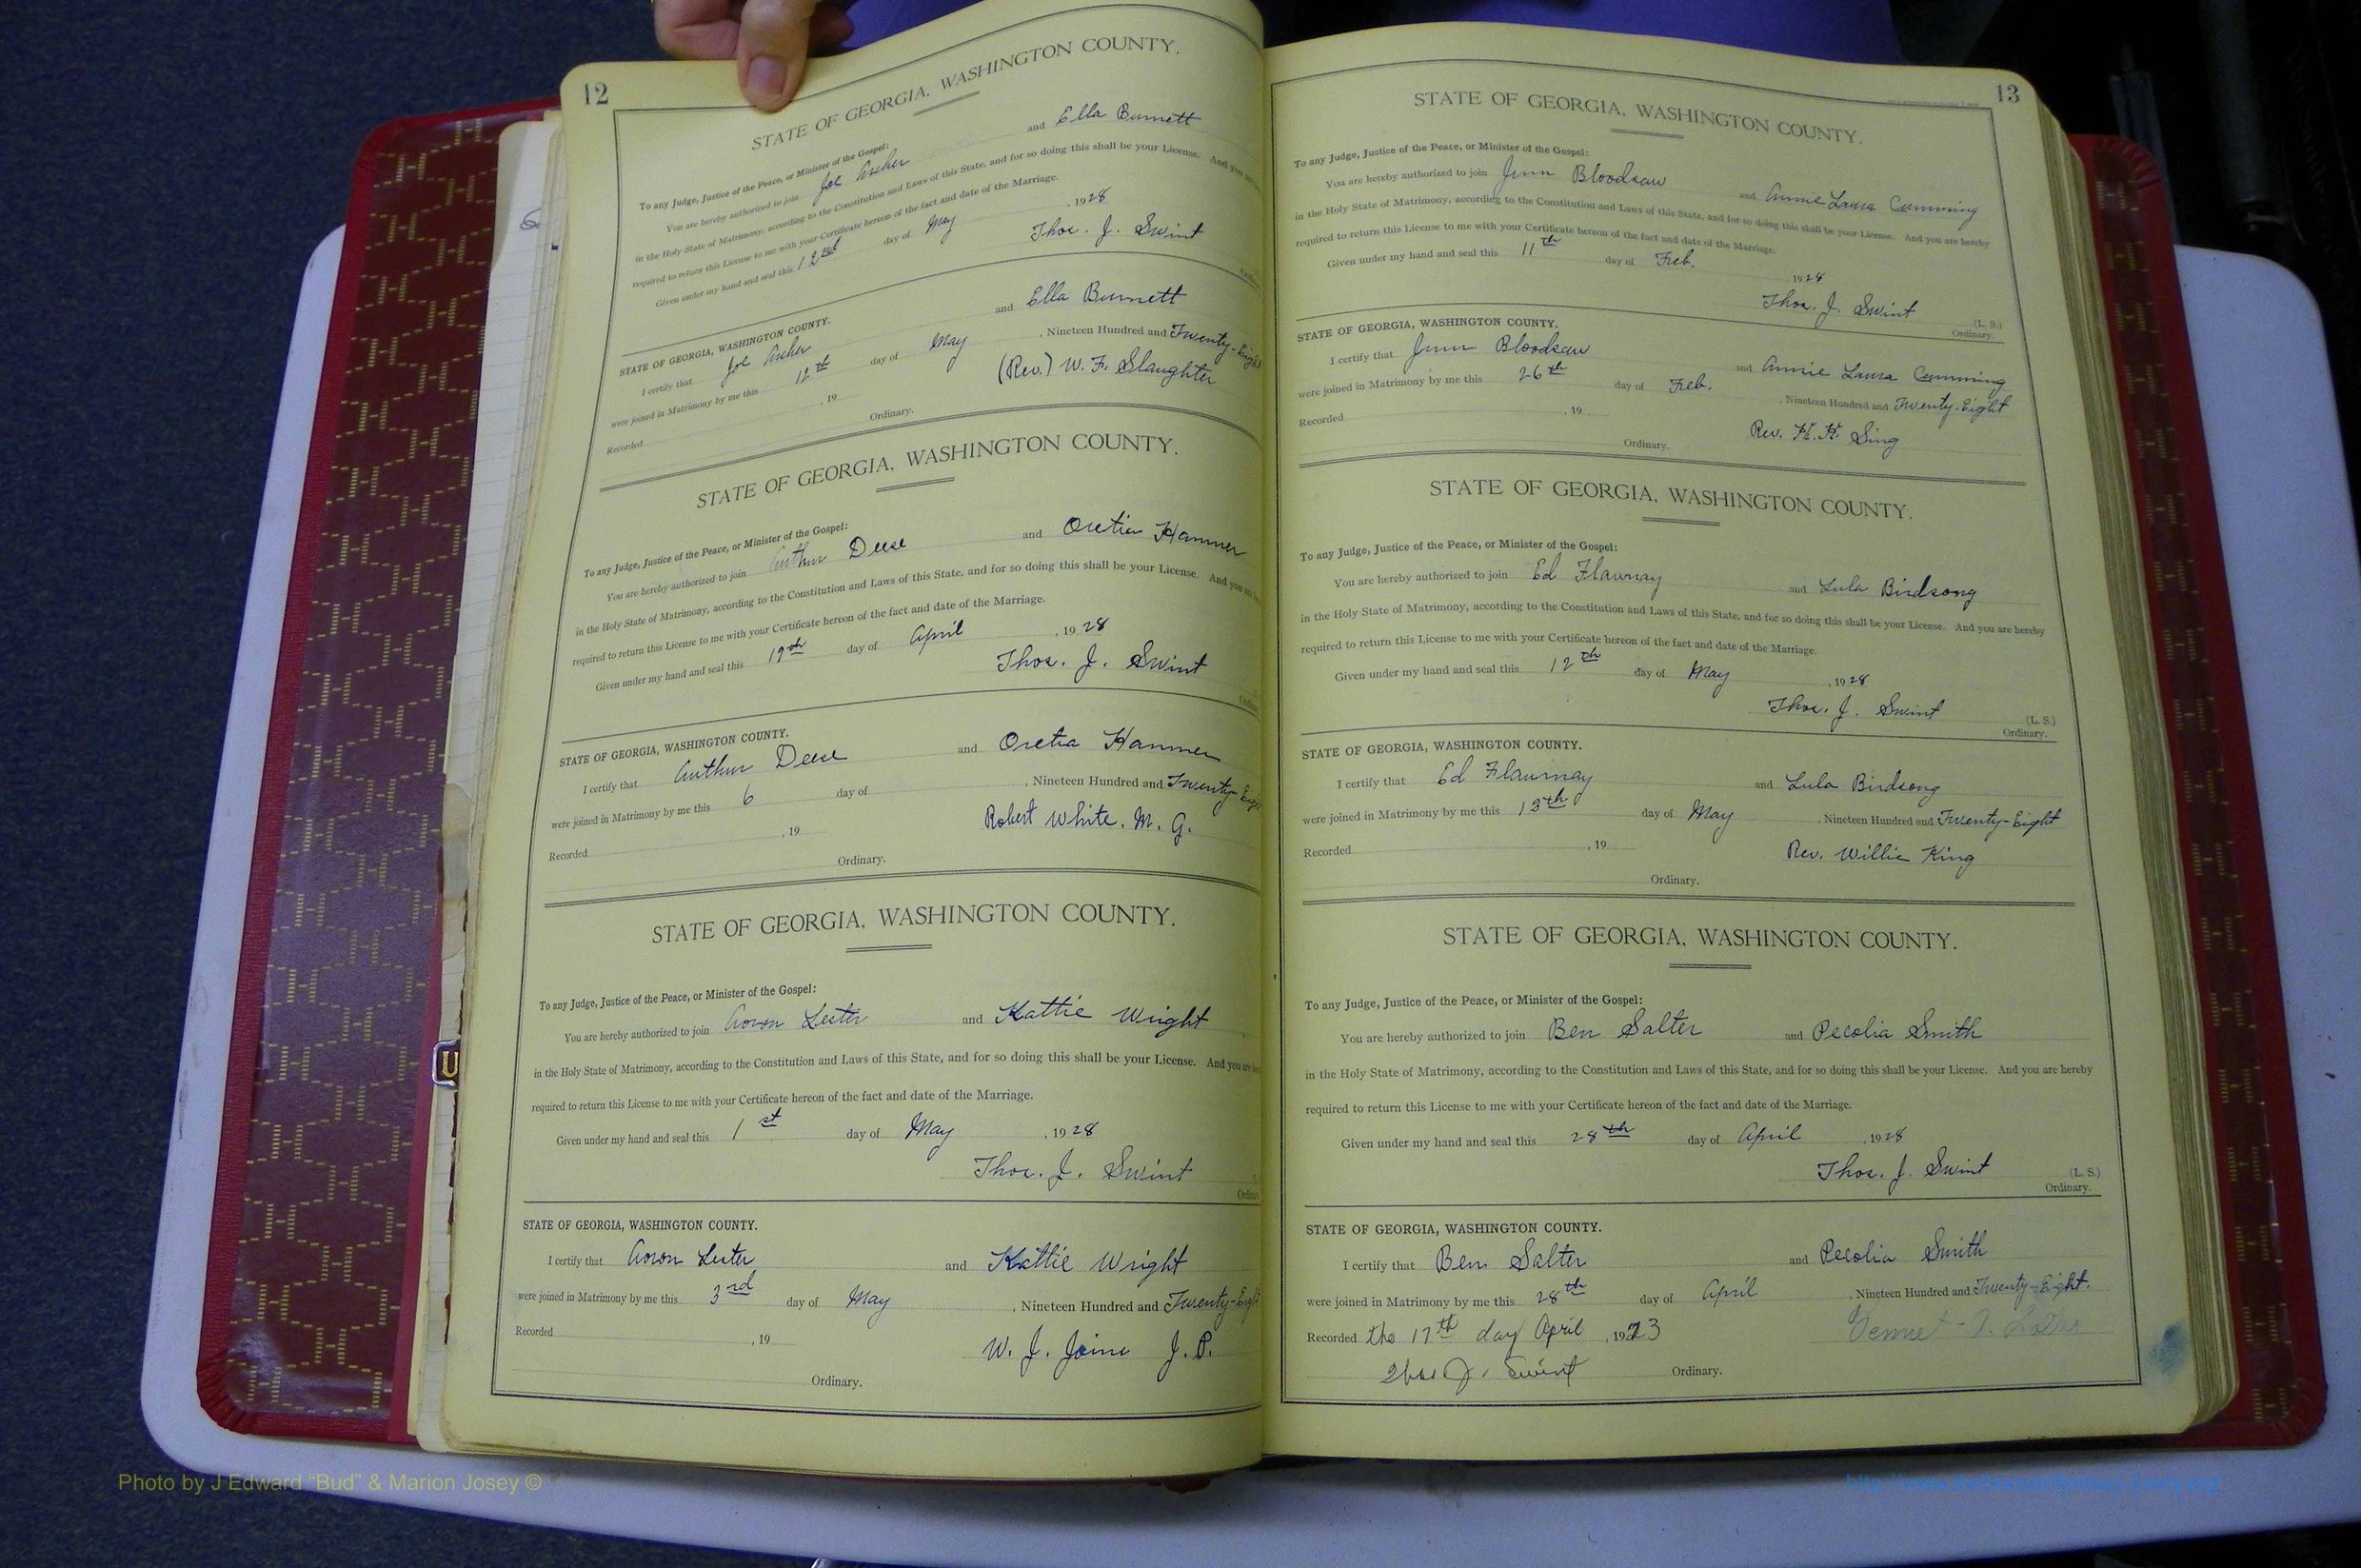 12
STATE OF GEORGIA, WASHINGTON COUNTY.
To any Judge, Justice of the Peace, or Minister of the Gospel:
You are hereby authorized to join Joe Archer and Ella Burnett
in the Holy State of Matrimony, according to the Constitution and Laws of this State, and for so doing this shall be your License. And you
required to return this License to me with your Certificate hereon of the fact and date of the Marriage.
Given under my hand and seal this 12nd day of May, 1928
Thos. J. Swint
STATE OF GEORGIA, WASHINGTON COUNTY.
I certify that Joe Archer and Ella Burnett
were joined in Matrimony by me this 12th day of May, Nineteen Hundred and Twenty-Eight
Recorded , 19 (Rev.) W. F. Slaughter
Ordinary.
STATE OF GEORGIA, WASHINGTON COUNTY.
To any Judge, Justice of the Peace, or Minister of the Gospel:
You are hereby authorized to join Arthur Deese and Oretia Hammer
in the Holy State of Matrimony, according to the Constitution and Laws of this State, and for so doing this shall be your License. And you
required to return this License to me with your Certificate hereon of the fact and date of the Marriage.
Given under my hand and seal this 19th day of April, 1928
Thos. J. Swint
STATE OF GEORGIA, WASHINGTON COUNTY.
I certify that Arthur Deese and Oretia Hammer
were joined in Matrimony by me this 6 day of , Nineteen Hundred and Twenty-Eig
Recorded , 19 Robert White. M. G.
Ordinary.
STATE OF GEORGIA, WASHINGTON COUNTY.
To any Judge, Justice of the Peace, or Minister of the Gospel:
You are hereby authorized to join Aoron Lester and Kattie Wright
in the Holy State of Matrimony, according to the Constitution and Laws of this State, and for so doing this shall be your License. And you are
required to return this License to me with your Certificate hereon of the fact and date of the Marriage.
Given under my hand and seal this 1st day of May, 1928
Thos. J. Swint
STATE OF GEORGIA, WASHINGTON COUNTY.
I certify that Aoron Lester and Kattie Wright
were joined in Matrimony by me this 3rd day of May, Nineteen Hundred and Twenty-Eight
Recorded , 19 W. J. Joine J. P.
Ordinary.
13
STATE OF GEORGIA, WASHINGTON COUNTY.
To any Judge, Justice of the Peace, or Minister of the Gospel:
You are hereby authorized to join Jim Bloodsaw and Annie Laura Cumming
in the Holy State of Matrimony, according to the Constitution and Laws of this State, and for so doing this shall be your License. And you are hereby
required to return this License to me with your Certificate hereon of the fact and date of the Marriage.
Given under my hand and seal this 11th day of Feb. 1928
Thos. J. Swint (L. S.)
Ordinary.
STATE OF GEORGIA, WASHINGTON COUNTY.
I certify that Jim Bloodsaw and Annie Laura Cumming
were joined in Matrimony by me this 26th day of Feb. , Nineteen Hundred and Twenty-Eight
Recorded , 19 Rev. H. H. Sing
Ordinary.
STATE OF GEORGIA, WASHINGTON COUNTY.
To any Judge, Justice of the Peace, or Minister of the Gospel:
You are hereby authorized to join Ed Flaurnay and Lula Birdsong
in the Holy State of Matrimony, according to the Constitution and Laws of this State, and for so doing this shall be your License. And you are hereby
required to return this License to me with your Certificate hereon of the fact and date of the Marriage.
Given under my hand and seal this 12th day of May , 1928
Thos. J. Swint (L. S.)
Ordinary.
STATE OF GEORGIA, WASHINGTON COUNTY.
I certify that Ed Flaurnay and Lula Birdsong
were joined in Matrimony by me this 13th day of May , Nineteen Hundred and Twenty-Eight
Recorded , 19 Rev. Willie King
Ordinary.
STATE OF GEORGIA, WASHINGTON COUNTY.
To any Judge, Justice of the Peace, or Minister of the Gospel:
You are hereby authorized to join Ben Salter and Pecolia Smith
in the Holy State of Matrimony, according to the Constitution and Laws of this State, and for so doing this shall be your License. And you are hereby
required to return this License to me with your Certificate hereon of the fact and date of the Marriage.
Given under my hand and seal this 28th day of April , 1928
Thos. J. Swint (L. S.)
Ordinary.
STATE OF GEORGIA, WASHINGTON COUNTY.
I certify that Ben Salter and Pecolia Smith
were joined in Matrimony by me this 28th day of April , Nineteen Hundred and Twenty-Eight.
Recorded the 17th day April , 1923
Thos J. Swint Ordinary.
Photo by J Edward “Bud” & Marion Josey ©